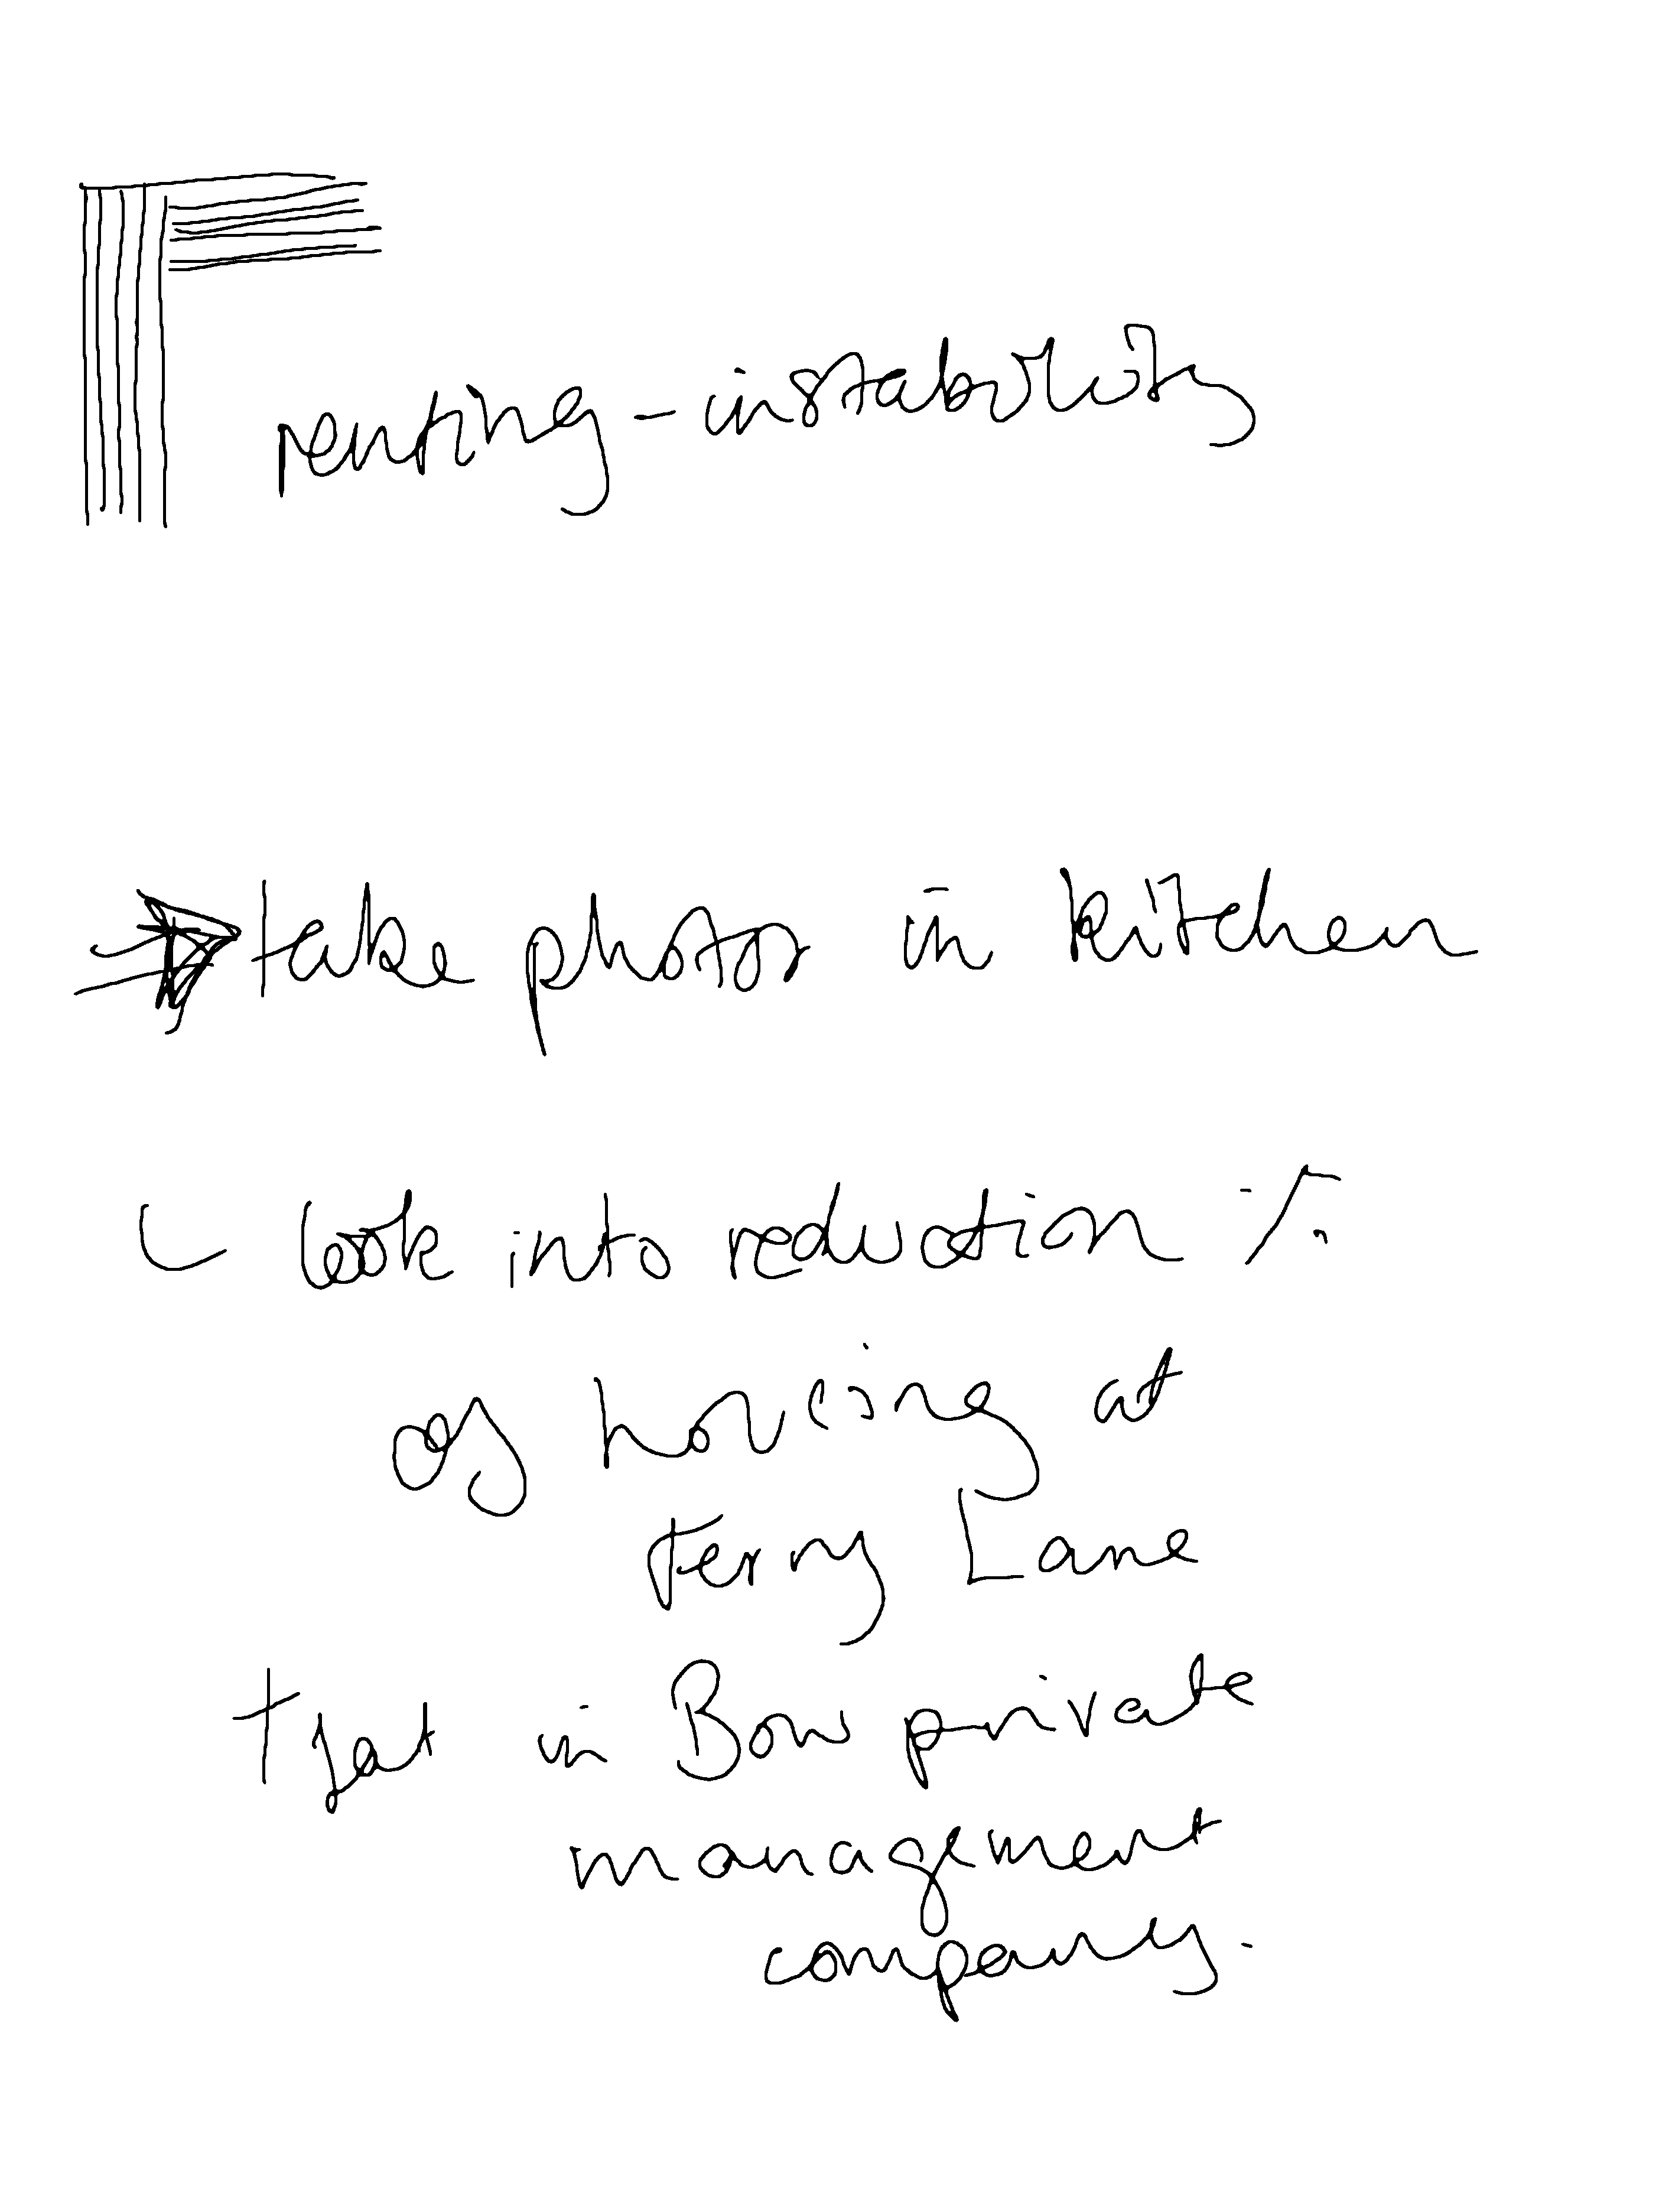 renting - instability
take photos in kitchen
look into reduction %
of housing at
Ferry Lane
+ flat in Bow private
management
company.